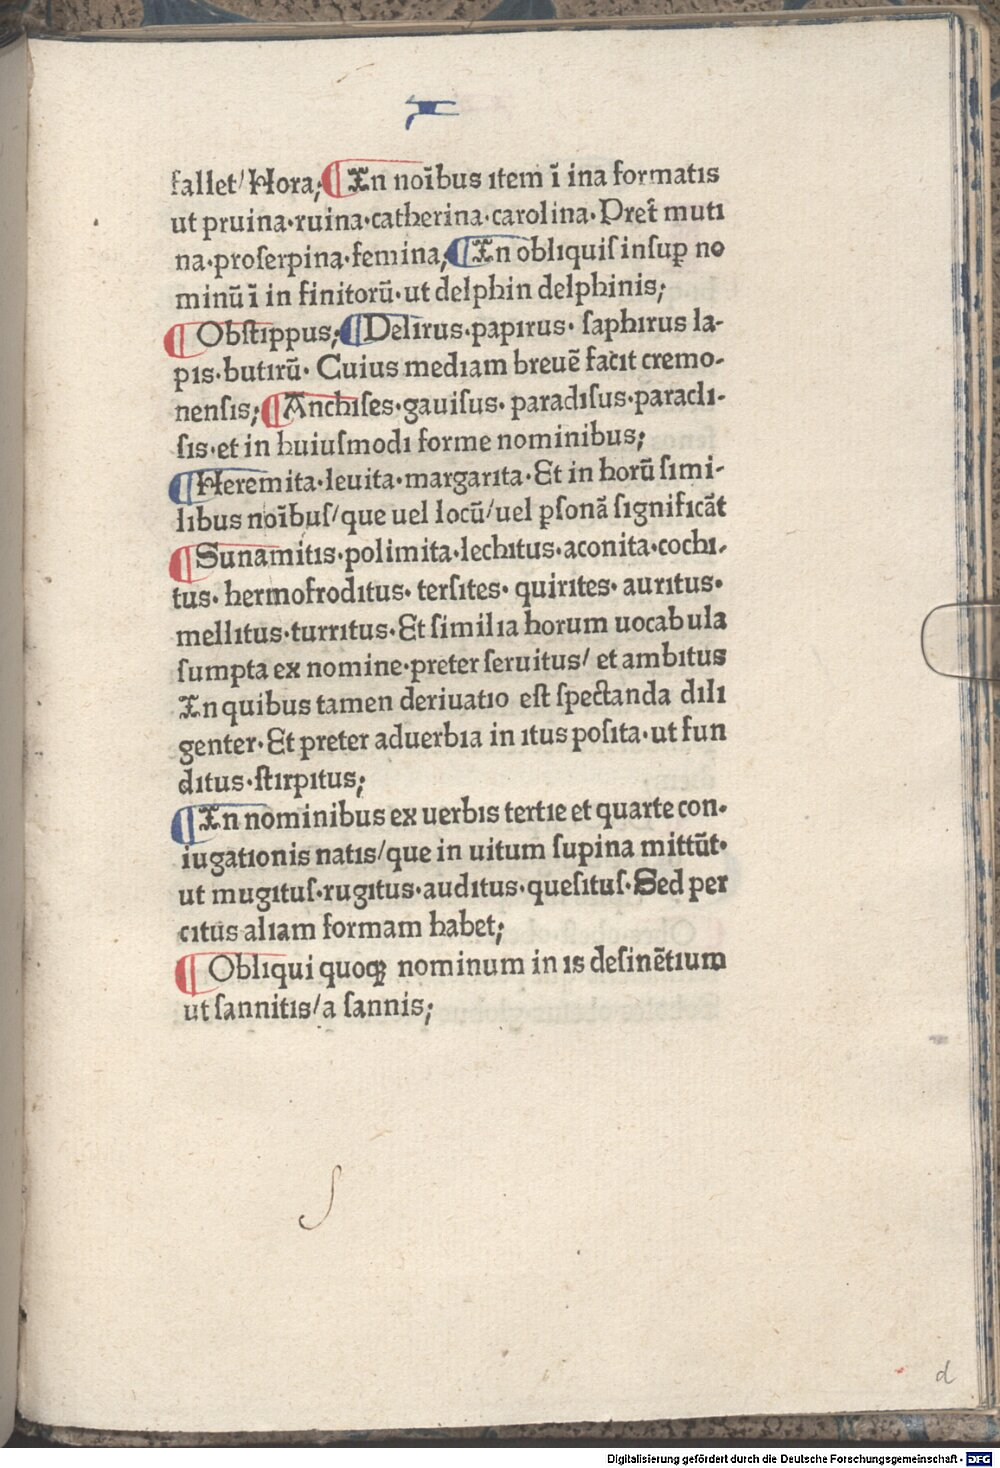 I
fallet/Hora; ¶ In noībus item ī ina formatis
ut pruina·ruina·catherina·carolina·Pret̄ muti
na·proſerpina·femina; ¶ In obliquiſ inſuꝑ no
minū ī in finitorū·ut delphin delphinis;
¶ Obſtippus; ¶ Delirus·papirus· ſaphirus la-
pis·butirū· Cuius mediam breuē facit cremo-
nenſis; ¶ Anchiſes·gauiſus· paradiſus·paracli-
ſis·et in huiuſmodi forme nominibus;
¶ Heremita·leuita·margarita·Et in horū ſimi-
libus noībuſ/que uel locū/uel pſonā ſignificāt
¶ Sunamitis·polimita·lechitus·aconita·cochi-
tus· hermofroditus· terſites· quirites· auritus·
mellitus·turritus·Et ſimilia horum uocabula
ſumpta ex nomine·preter ſeruitus/ et ambitus
In quibus tamen deriuatio eſt ſpectanda dili
genter·Et preter aduerbia in itus poſita·ut fun
ditus·ſtirpitus;
¶ In nominibus ex uerbis tertie et quarte con-
iugationis natis/que in uitum ſupina mittūt·
ut mugituſ·rugitus·auditus·queſituſ·Sed per
citus aliam formam habet;
¶ Obliqui quoqꝫ nominum in is deſinētium
ut ſannitis/a ſannis;
d
Digitalisierung gefördert durch die Deutsche Forschungsgemeinschaft - DFG